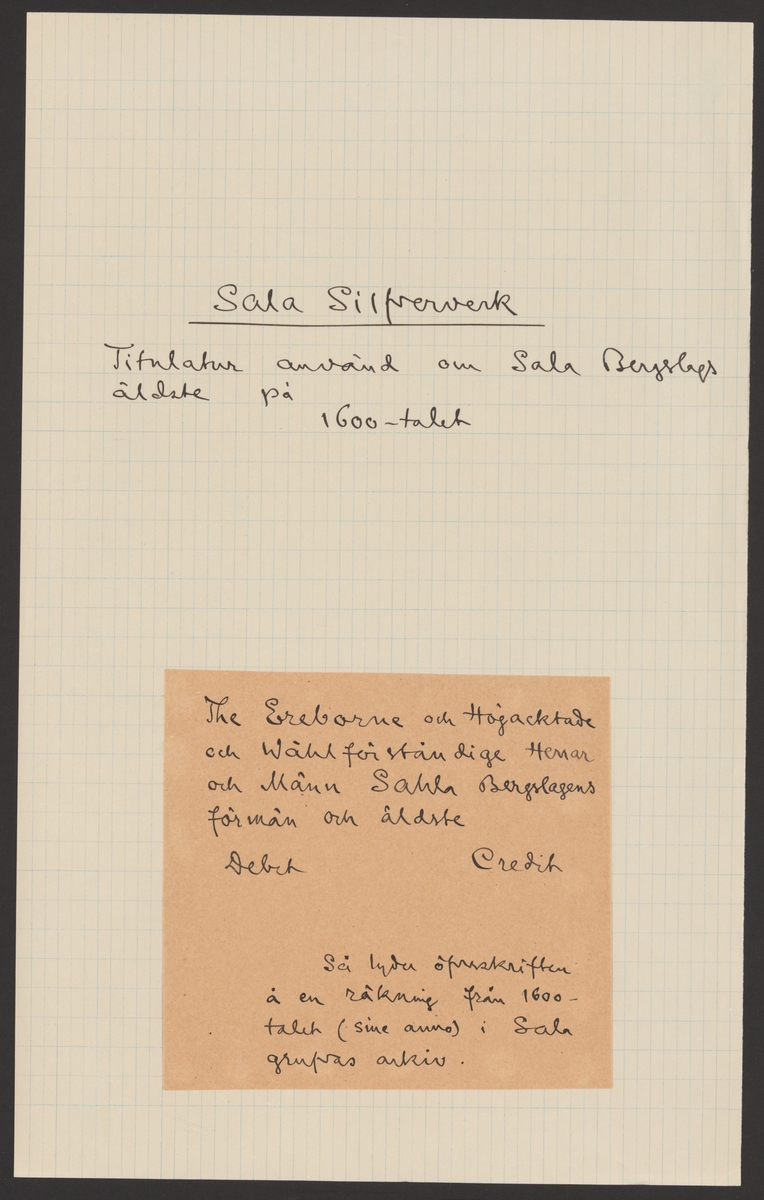 Sala Silfververk
Titulatur använd om Sala Bergslags
äldste på
1600-talet
The Ereborne och Högacktade
och Wählförståndige Herrar
och Männ Sahla Bergslagens
förmän och äldste
Debet Credit
Så lyder öfverskriften
å en räkning från 1600-
talet (sine anno) i Sala
grufvas arkiv.